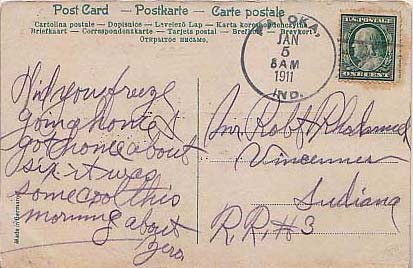 Post Card - Postkarte - Carte postale
Cartolina postale - Dopisnice - Levelező Lap - Karta korespondencyjna
Briefkaart - Correspondenzkarte - Tarjeta postal - Brefkort - Brevkort
Открытое письмо.
OKA,
JAN
5
8 AM
1911
IND.
U.S. POSTAGE
ONE CENT
Did you freeze
going home I
got home about
six it was
some cool this
morning about
zero
Mr Robt
Vincennes
Indiana
R.R. #3
Made in Germany